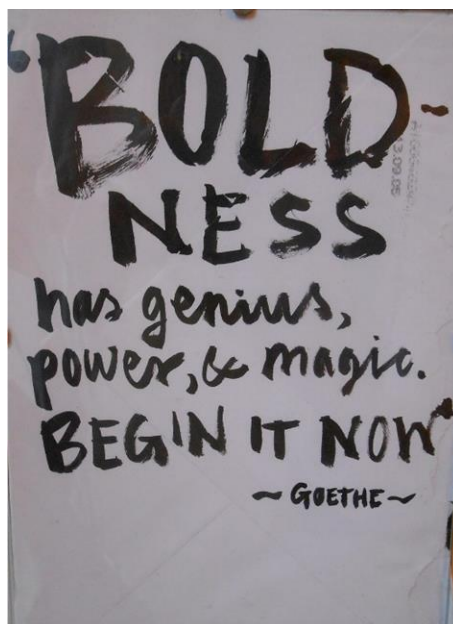 “BOLD-
NESS
has genius,
power, & magic.
BEGIN IT NOW”
~ GOETHE ~
3.09.05